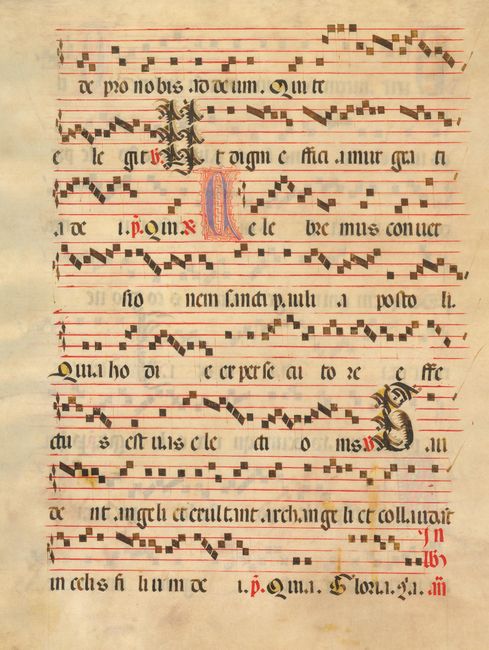 de pro nobis ad deum. Qui te
e le git ℣ Ut digni e ffici amur gra ti
a de i. p̃. Qui. ℟ Ce le bre mus conuer
sio nem sancti pauli a posto li.
Quia ho di e ex perse cu to re e ffe
ctus est uas e le cti o nis ℣ Gau
de nt angeli et exultant archangeli et collaudāt
in celis fi lium de i. p̃. Quia. Gloria. ℘a.